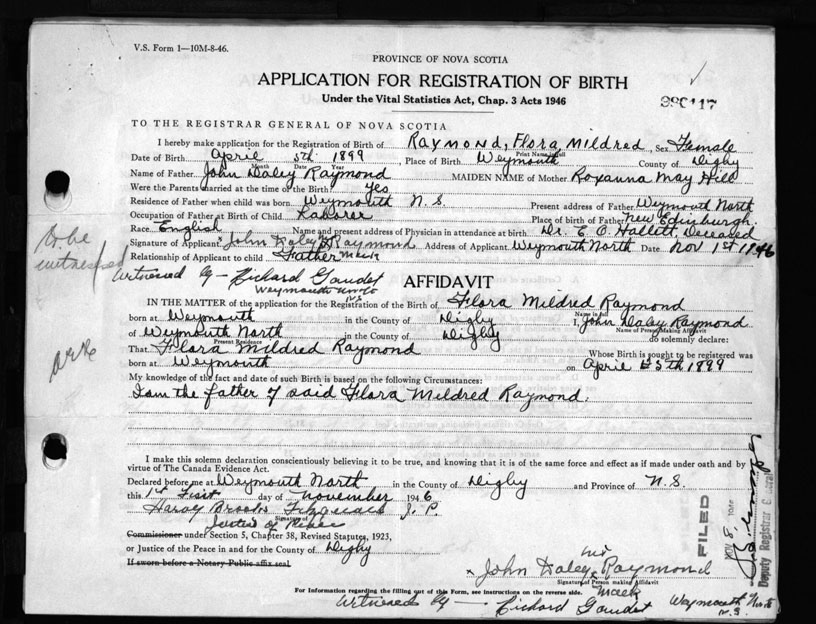 V.S. Form 1—10M-8-46.
PROVINCE OF NOVA SCOTIA
APPLICATION FOR REGISTRATION OF BIRTH
Under the Vital Statistics Act, Chap. 3 Acts 1946
TO THE REGISTRAR GENERAL OF NOVA SCOTIA
I hereby make application for the Registration of Birth of Raymond, Flora, Mildred, Sex Female
Print Name in full
Date of Birth April 5th 1899, Place of Birth Weymouth County of Digby
Month Date Year
Name of Father John Daley Raymond MAIDEN NAME of Mother Roxanna May Hill
Were the Parents married at the time of the Birth? Yes
Residence of Father when child was born Weymouth N.S. Present address of Father Weymouth North
Occupation of Father at Birth of Child Laborer Place of birth of Father New Edinburgh.
Race English Name and present address of Physician in attendance at birth Dr. E. C. Hallett, Deceased
Signature of Applicant John Daley X Raymond Address of Applicant Weymouth North Date Nov 1st 1946
Relationship of Applicant to child Father mark
To be witnessed
Witnessed by — Richard Gaudet
Weymouth North
N.S.
AFFIDAVIT
IN THE MATTER of the application for the Registration of the Birth of Flora Mildred Raymond
Name in full
born at Weymouth in the County of Digby I, John Daley Raymond
Name of Person Making Affidavit
of Weymouth North in the County of Digby do solemnly declare:
Present Residence
That Flora Mildred Raymond Whose Birth is sought to be registered was
born at Weymouth on April 5th 1899
My knowledge of the fact and date of such Birth is based on the following Circumstances:
I am the father of said Flora Mildred Raymond.
I make this solemn declaration conscientiously believing it to be true, and knowing that it is of the same force and effect as if made under oath and by
virtue of The Canada Evidence Act.
Declared before me at Weymouth North in the County of Digby and Province of N.S.
this 1st First day of November 1946
Harvey Brooks J. P.
Signature of
Justice of Peace
Commissioner under Section 5, Chapter 38, Revised Statutes, 1923,
or Justice of the Peace in and for the County of Digby
If sworn before a Notary Public affix seal
John Daley his X Raymond
Signature of Person making Affidavit
mark
For Information regarding the filling out of this Form, see instructions on the reverse side.
Witnessed by — Richard Gaudet Weymouth North
N.S.
FILED
Deputy Registrar General